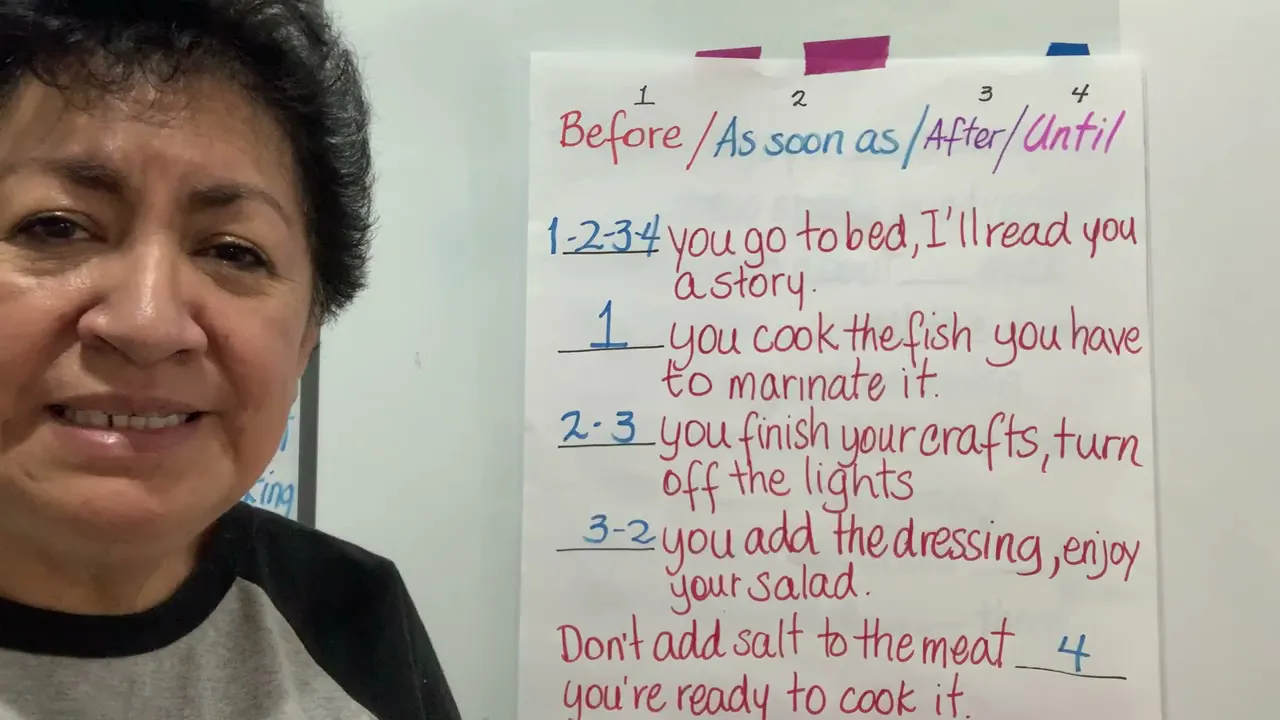 1 2 3 4
Before/As soon as/After/Until
1-2-3-4 you go to bed, I'll read you
a story.
1 you cook the fish you have
to marinate it.
2-3 you finish your crafts, turn
off the lights
3-2 you add the dressing, enjoy
your salad.
Don't add salt to the meat 4
you're ready to cook it.